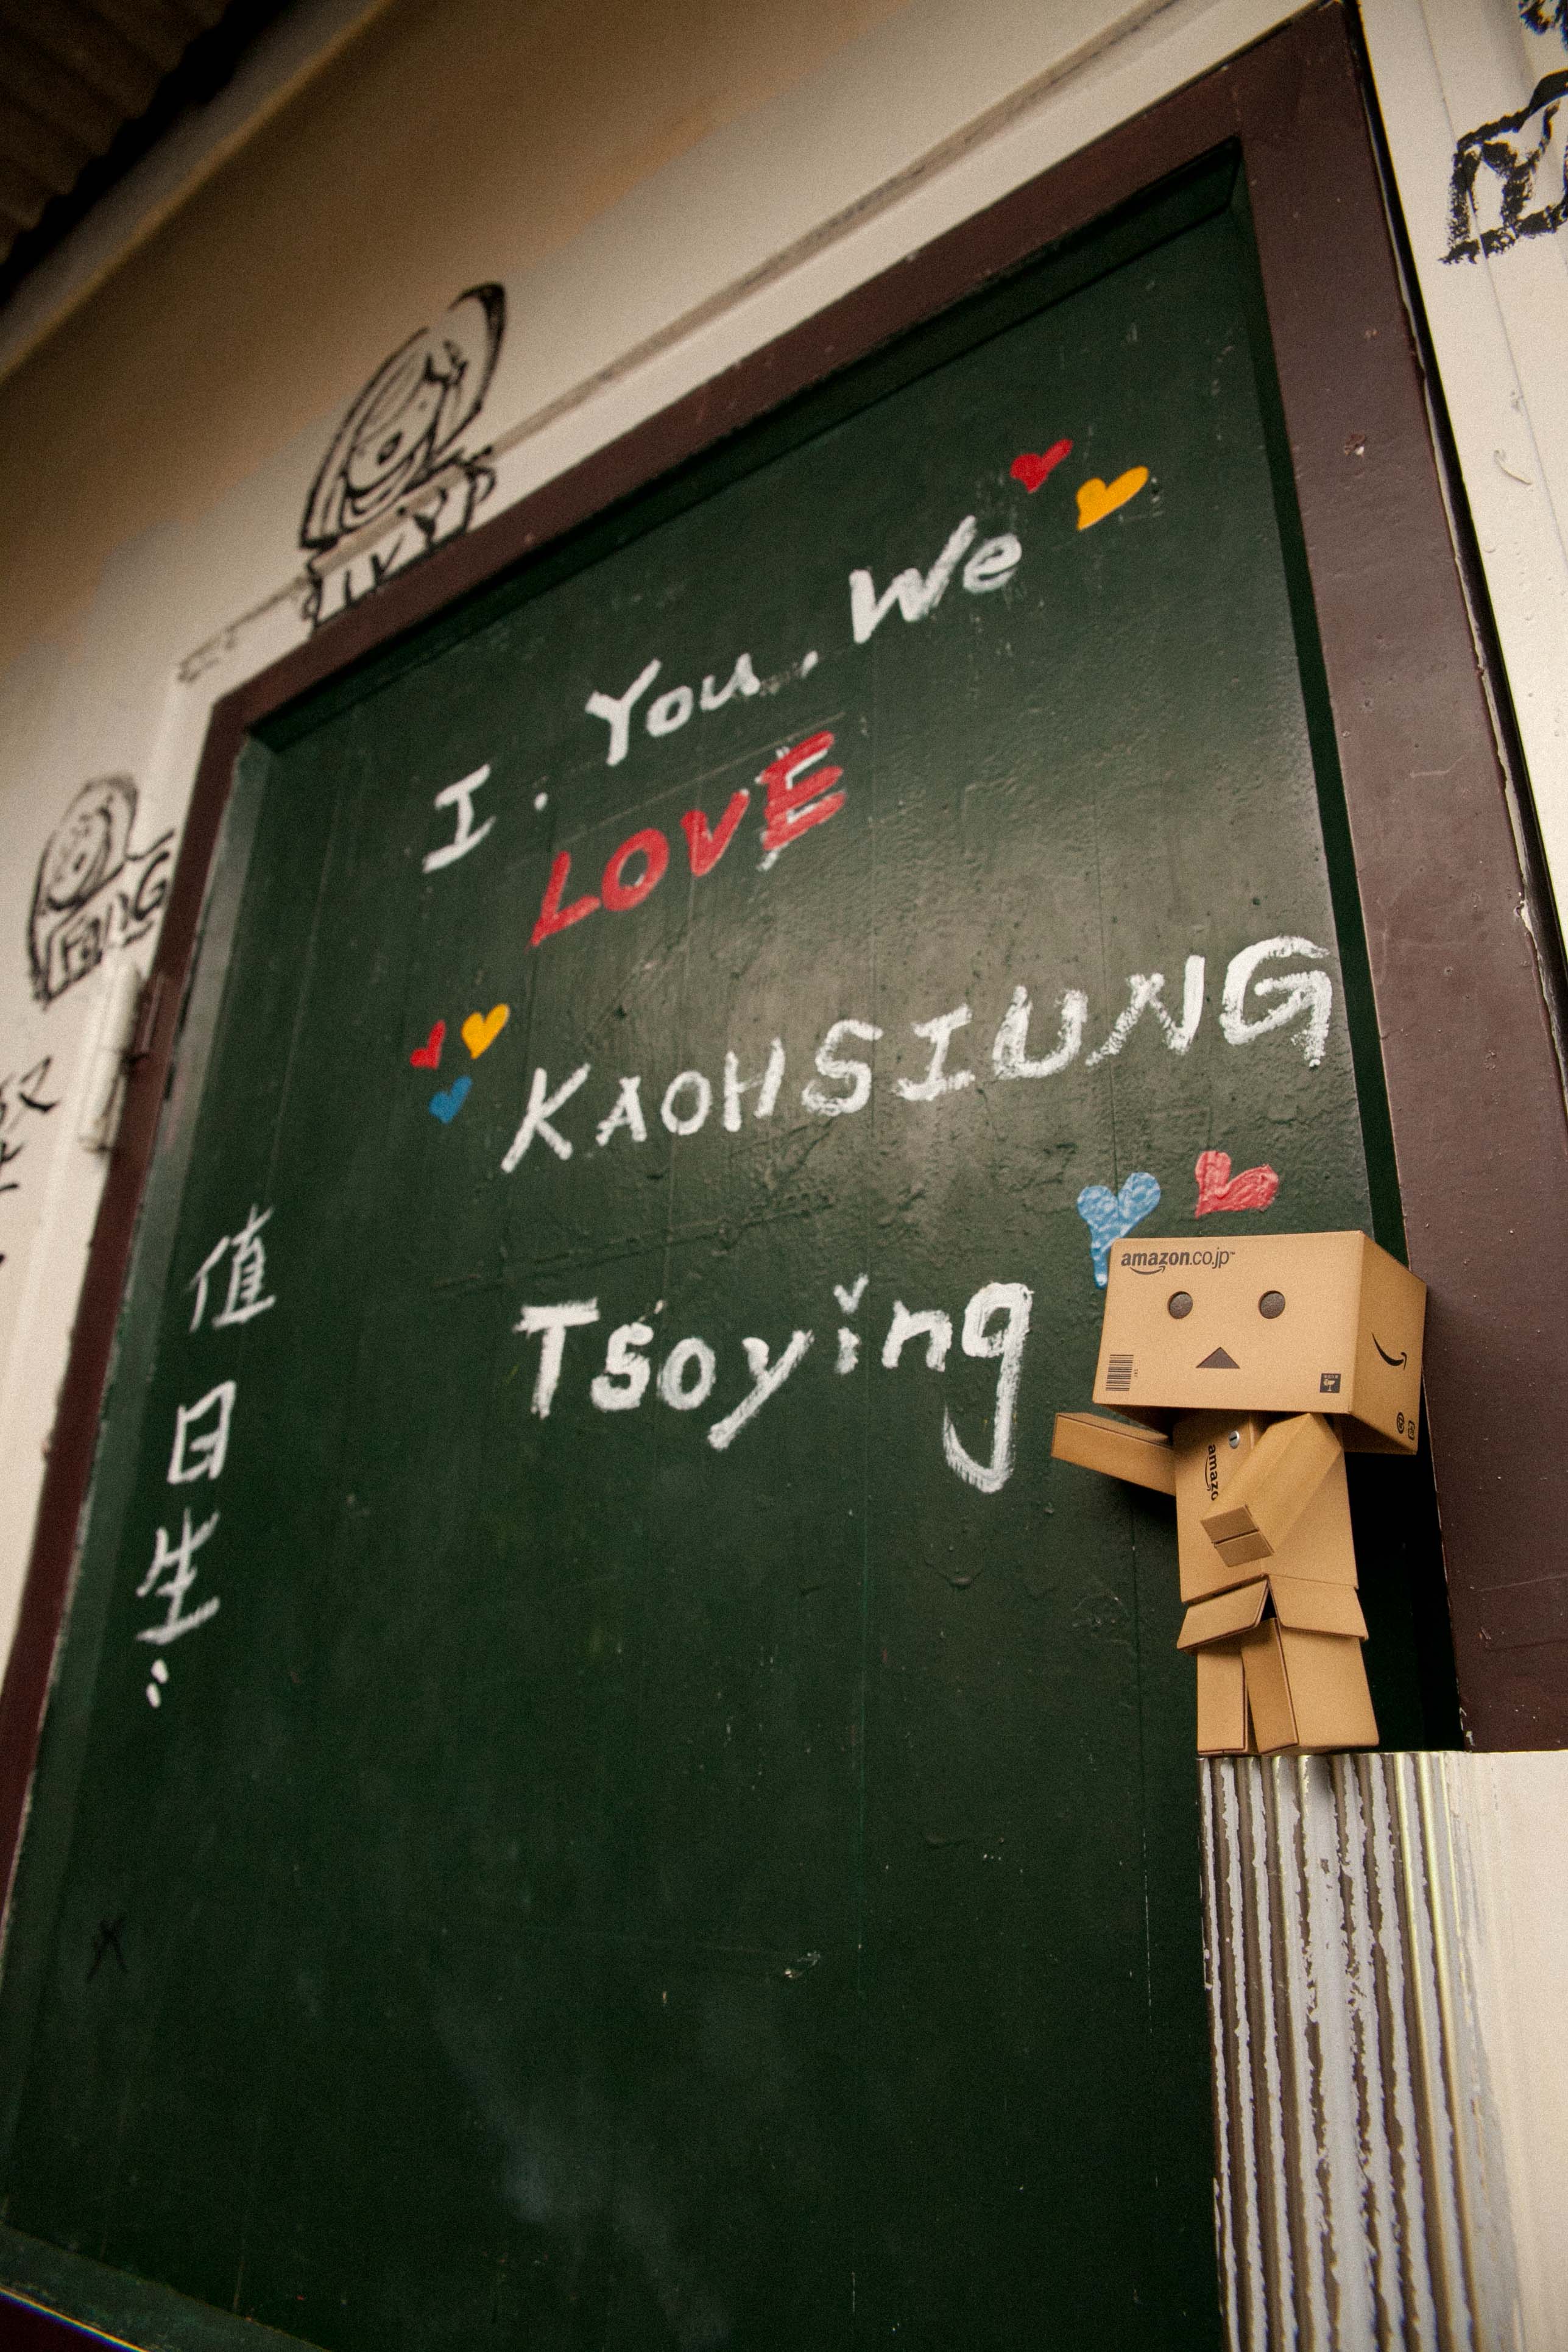 IVY
FANG
I . You . We
LOVE
KAOHSIUNG
Tsoying
值日生:
amazon.co.jp
amazo